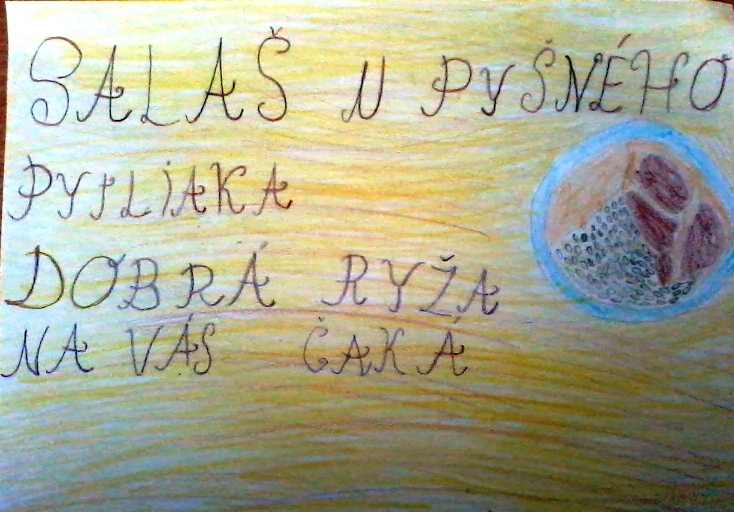 SALAŠ U PYŠNÉHO
PYTLIAKA
DOBRÁ RYŽA
NA VÁS ČAKÁ